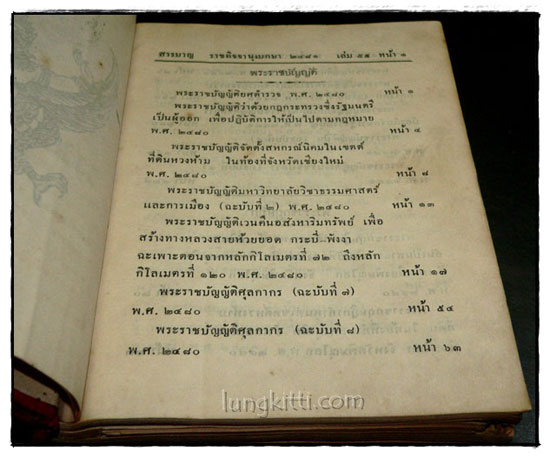 สารบาญ ราชกิจจานุเบกษา ๒๔๘๑ เล่ม ๕๕ หน้า ๑
พระราชบัญญัติ
พระราชบัญญัติยศตำรวจ พ.ศ. ๒๔๘๐ หน้า ๑
พระราชบัญญัติว่าด้วยกฎกระทรวงซึ่งรัฐมนตรี
เป็นผู้ออก เพื่อปฏิบัติการให้เป็นไปตามกฎหมาย
พ.ศ. ๒๔๘๐ หน้า ๔
พระราชบัญญัติจัดตั้งสหกรณ์นิคมในเขตต์
ที่ดินหวงห้าม ในท้องที่จังหวัดเชียงใหม่
พ.ศ. ๒๔๘๐ หน้า ๘
พระราชบัญญัติมหาวิทยาลัยวิชาธรรมศาสตร์
และการเมือง (ฉะบับที่ ๒) พ.ศ. ๒๔๘๐ หน้า ๑๓
พระราชบัญญัติเวนคืนอสังหาริมทรัพย์ เพื่อ
สร้างทางหลวงสายห้วยยอด กระบี่ พังงา
ฉะเพาะตอนจากหลักกิโลเมตรที่ ๗๒ ถึงหลัก
กิโลเมตรที่ ๑๒๐ พ.ศ. ๒๔๘๐ หน้า ๑๗
พระราชบัญญัติศุลกากร (ฉะบับที่ ๗)
พ.ศ. ๒๔๘๐ หน้า ๕๔
พระราชบัญญัติศุลกากร (ฉะบับที่ ๘)
พ.ศ. ๒๔๘๐ หน้า ๖๓
lungkitti.com